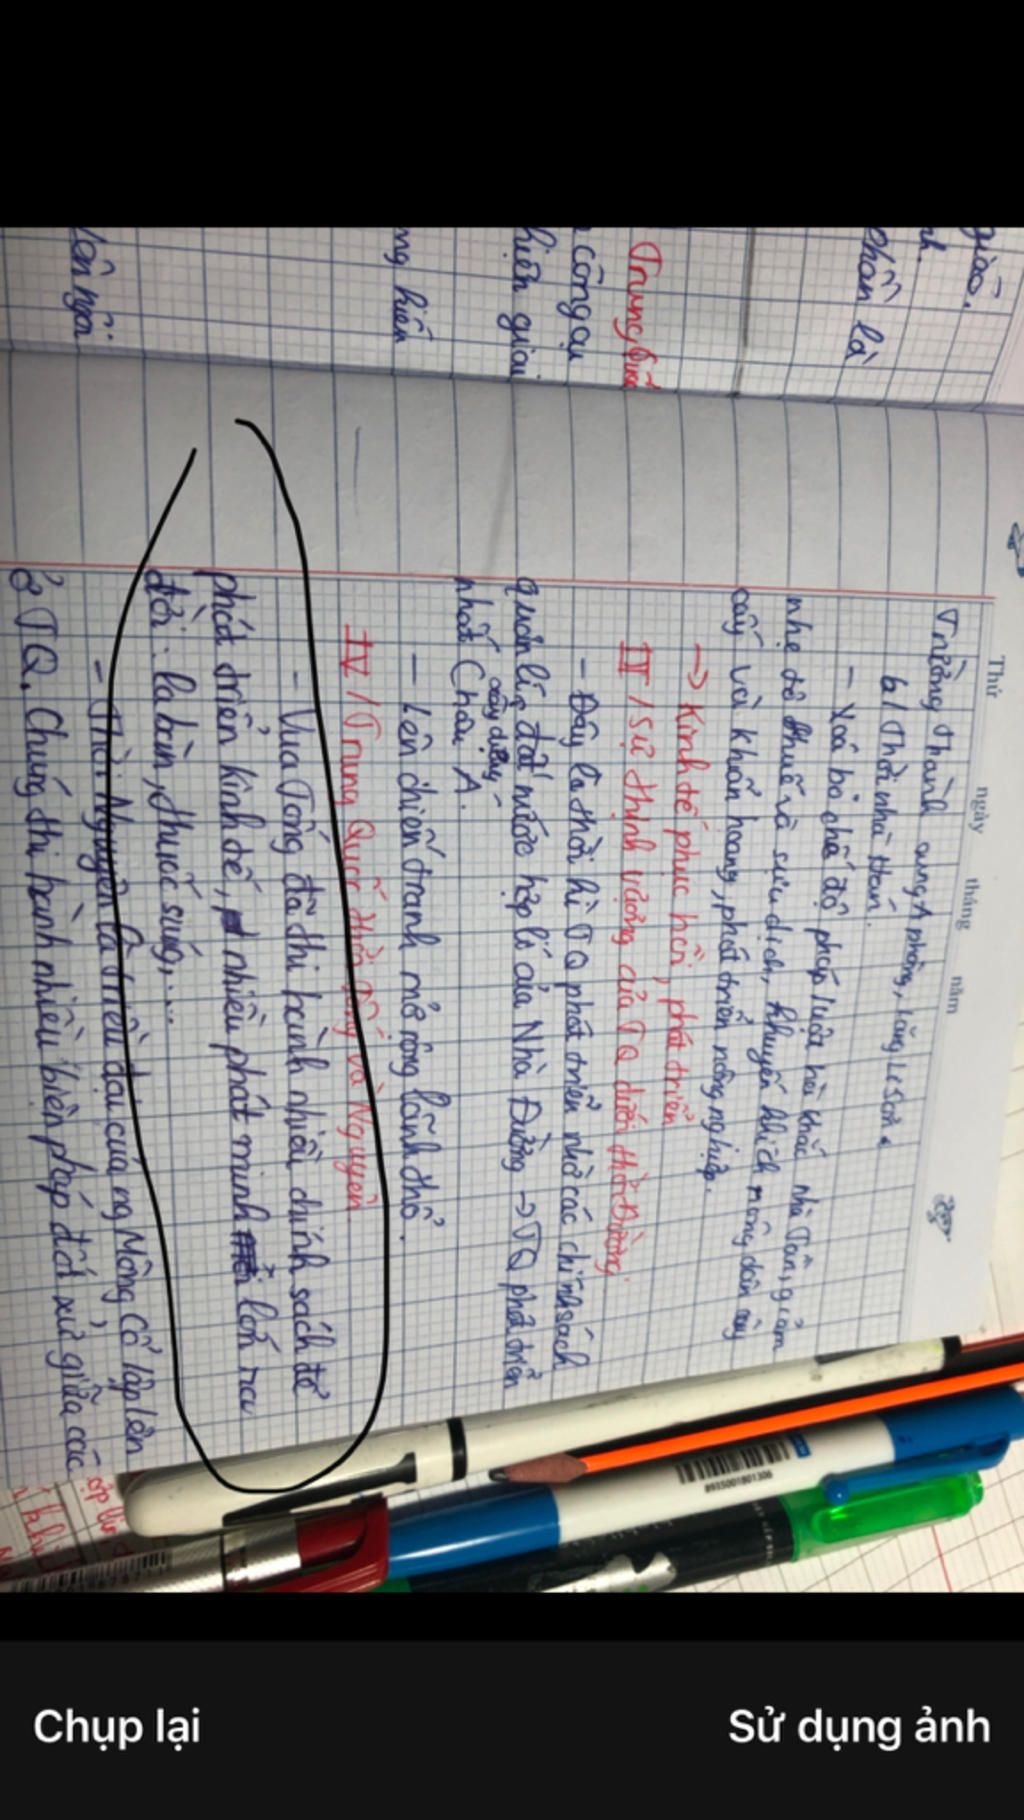 giàu.
nh.
phần là
Trung Quốc
công cụ
hiện giai
ng hiến
lên ngôi
Thứ ngày tháng năm
Trường thành cung A phòng, Lăng Li Sơn.
b/ Thời nhà Hán.
- Xoá bỏ chế độ pháp luật hà khắc nhà Tần, giảm
nhẹ tô thuế và sưu dịch, khuyến khích nông dân cày
cấy và khẩn hoang, phát triển nông nghiệp.
-> Kinh tế phục hồi, phát triển
III / Sự thịnh vượng của TQ dưới thời Đường.
- Đây là thời kì TQ phát triển nhờ các chính sách
xây dựng
quản lí đất nước hợp lí của Nhà Đường -> TQ phát triển
nhất Châu Á.
- Lên chiến tranh mở rộng lãnh thổ.
IV / Trung Quốc thời Tống và Nguyên.
- Vua Tống đã thi hành nhiều chính sách để
phát triển kinh tế, nhiều phát minh lớn ra
đời: la bàn, thuốc súng,...
- Thời Nguyên là triều đại của ng Mông Cổ lập lên
ở TQ. Chúng thi hành nhiều biện pháp đối xử giữa các
8935001801306
Chụp lại
Sử dụng ảnh